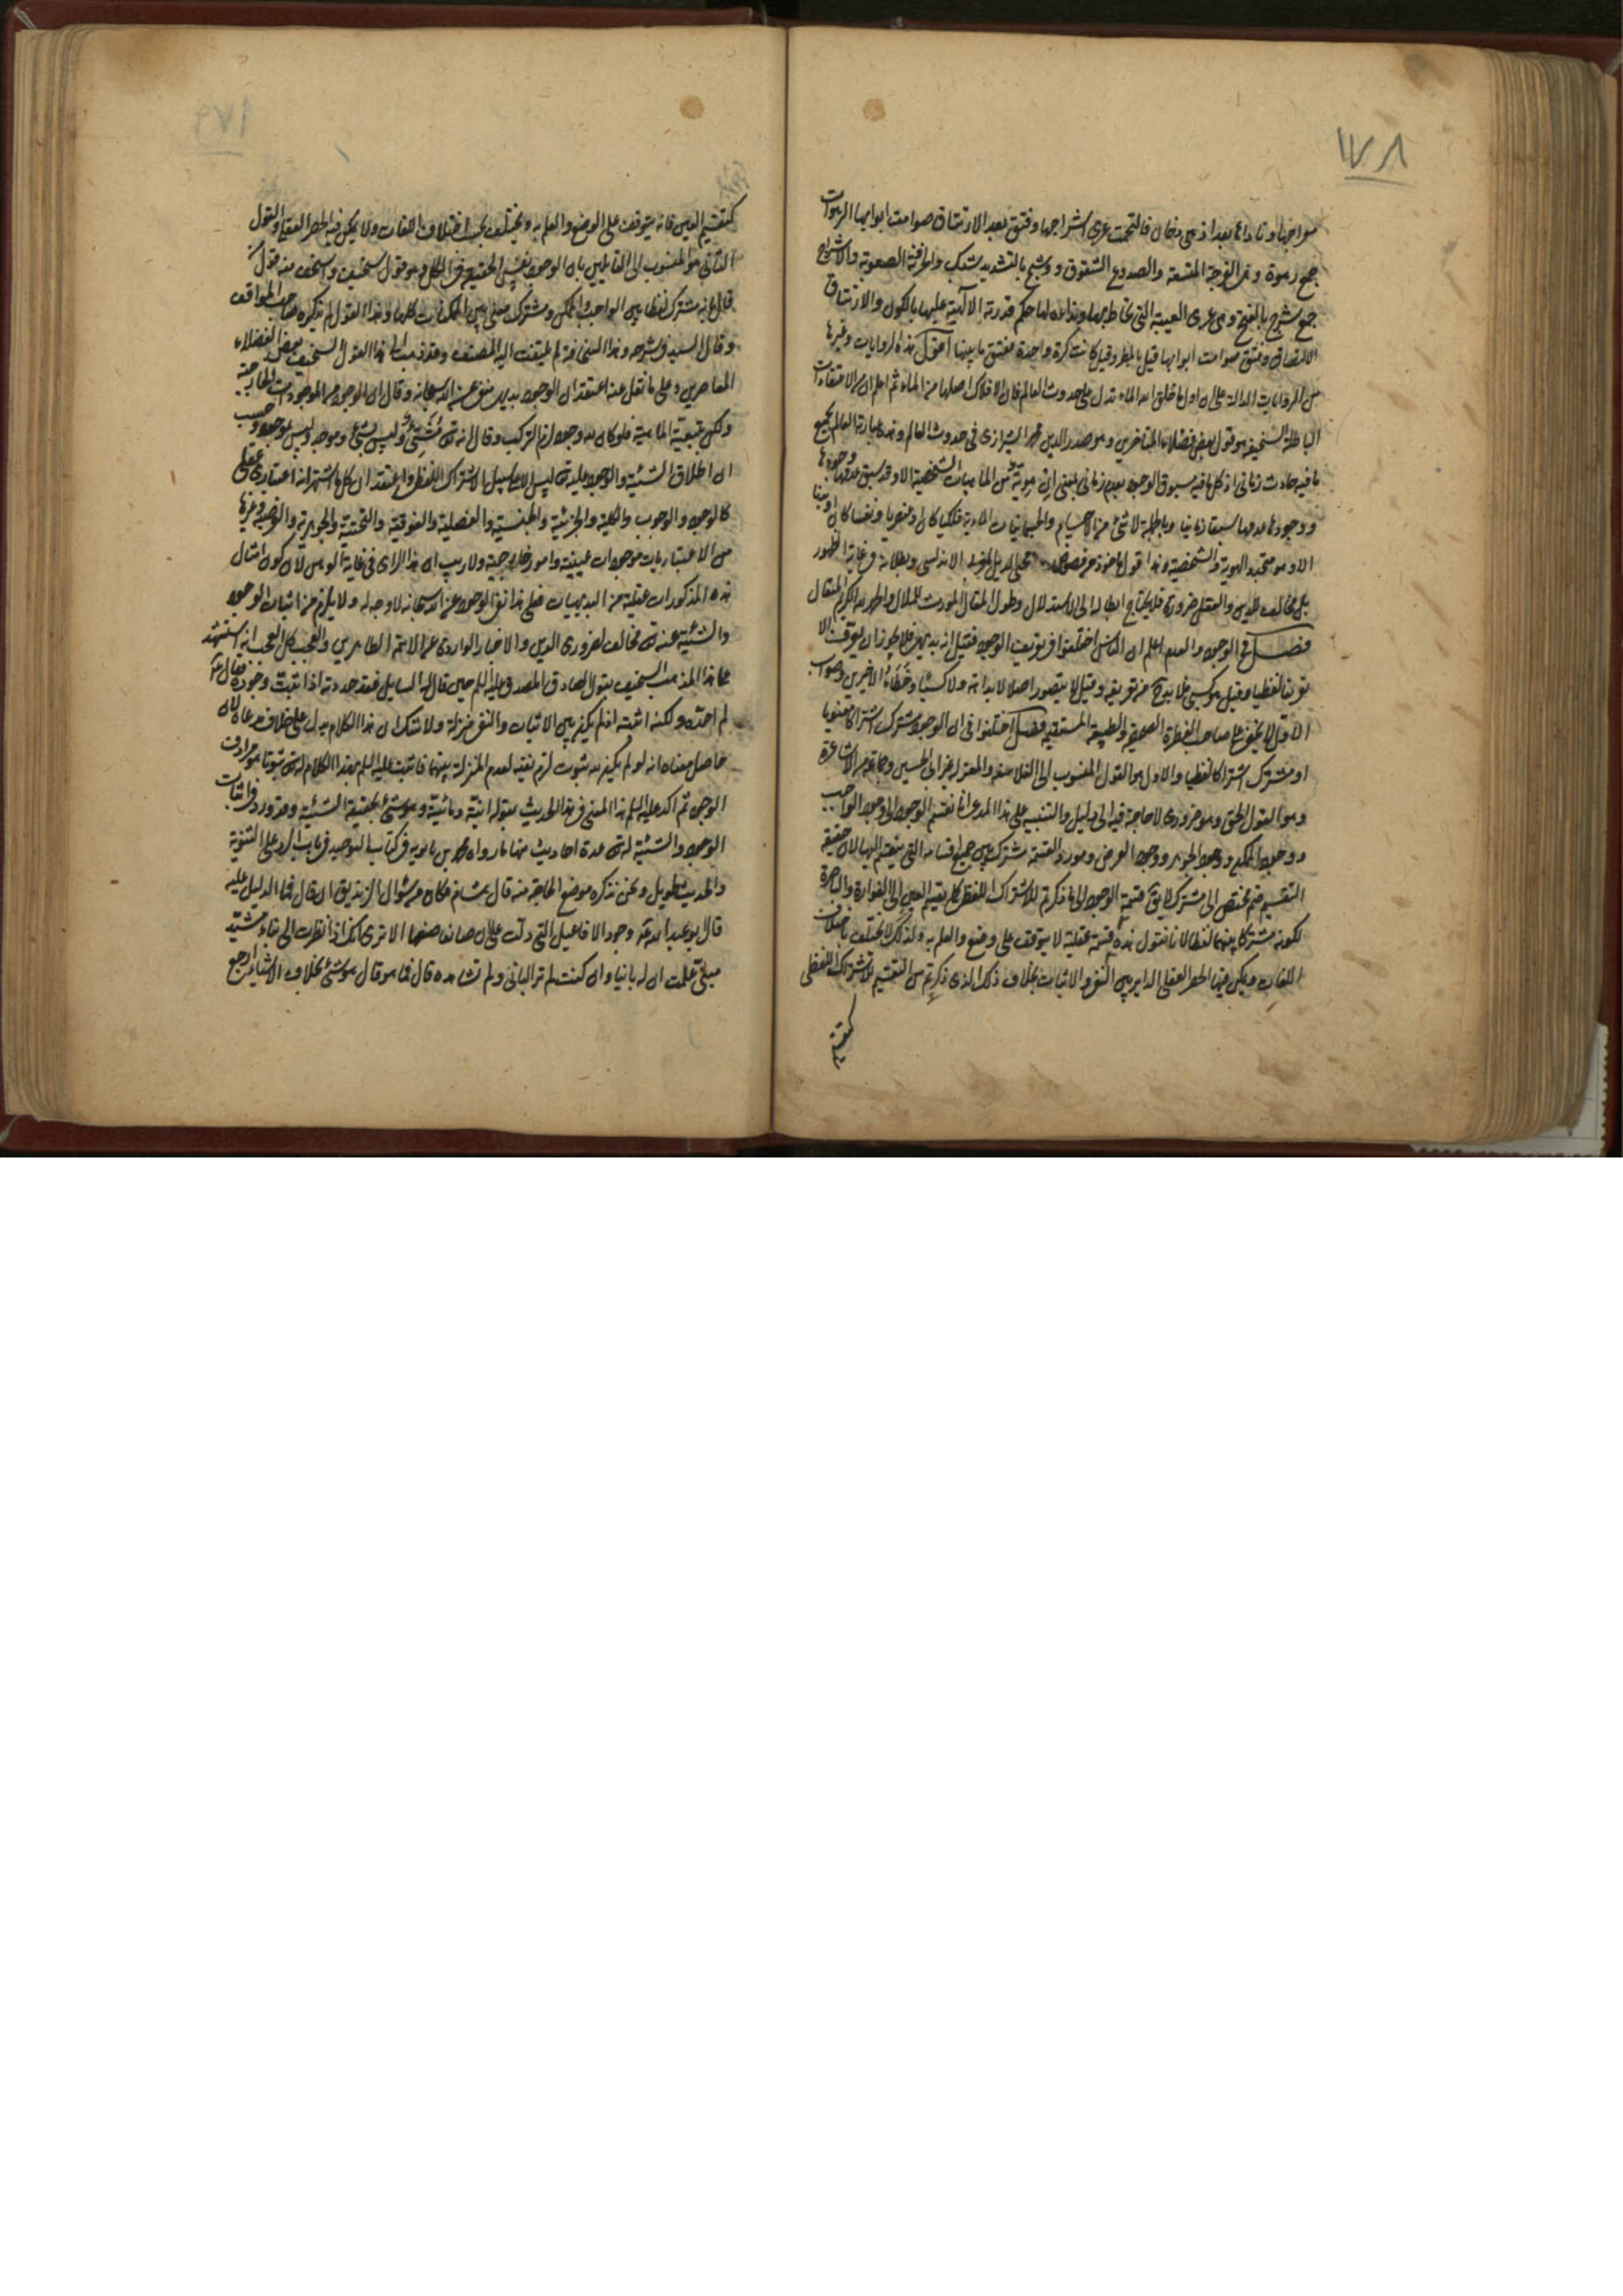 ١٧٨
معراجها وناداها بعد اذ هى دخان فالتحمت عرى اشراجها وفتق بعد الارتتاق صوامت ابوابها الرهوات
جمع رهوة وهى الفرجة المتسعة والصدوع الشقوق ووشج بالتشديد شبك والحزونة الصعوبة والاشراج
جمع شرج بالفتح وهى عرى العيبة التى تخاط بها ونداءه لها حكم قدرته الالهية عليها بالكون والارتتاق
الالتصاق وفتق صوامت ابوابها قيل بالمطر وقيل كانت كرة واحدة ففتق ما بينها اقول هذه الروايات وغيرها
من الروايات الدالة على ان اول ما خلق الله الماء تدل على حدوث العالم فان الافلاك اصلها من الماء ثم اعلم ان من الاعتقادات
الباطلة السخيفة هو قول بعض فضلاء المتاخرين وهو صدر الدين محمد الشيرازى فى حدوث العالم وهذه عبارته العالم بجميع
ما فيه حادث زمانى اذ كل ما فيه مسبوق الوجود بعدم زمانى بمعنى ان لا هوية من الماهيات الشخصية الا وقد سبق عدمها وجودها
ووجودها عدمها سبقا زمانيا وبالجملة لا شئ من الاجسام والجسمانيات المادية فلكيا كان او عنصريا ونفسا كان او بدنا
الا وهو متجدد الهوية والشخصية وهذا قول ماخوذ من فصوص محى الدين الاندلسى وبطلانه فى غاية الظهور
بل مخالف للدين والعقل ضرورة فلا يحتاج ابطاله الى الاستدلال وطول المقال المورث للملال والحمد لله الكريم المتعال
فصل فى الوجود والعدم اعلم ان الناس اختلفوا فى تعريف الوجود فقيل انه بديهى فلا يجوز ان يعرف الا
تعريفا لفظيا وقيل هو كسبى فلا بد من تعريفه وقيل لا يتصور اصلا لا بداهة ولا كسبا وخطاء الاخيرين وصواب
الاول لا يخفى على صاحب الفطرة الصحيحة والطبيعة المستقيمة فصل اختلفوا فى ان الوجود مشترك اشتراكا معنويا
او مشترك اشتراكا لفظيا والاول هو القول المنسوب الى الفلاسفة والمعتزلة غير ابى الحسين وجماعة من الاشاعرة
وهو القول الحق وهو ضرورى لا حاجة فيه الى دليل والتنبيه على هذا المدعى انا نقسم الوجود الى وجود الواجب
ووجود الممكن ووجود الجوهر ووجود العرض ومورد القسمة مشترك بين جميع اقسامه التى ينقسم اليها لان حقيقة
التقسيم ضم مختص الى مشترك لا يق قسمة الوجود الى ما ذكرتم للاشتراك اللفظى كما يقسم العين الى الفوارة والباصرة
لكونه مشتركا بينهما لفظا لانا نقول هذه قسمة عقلية لا يتوقف على وضع والعلم به ولذلك لا يختلف باختلاف
اللغات ويمكن فيها الحصر العقلى الداير بين النفى والاثبات بخلاف ذلك الذى ذكرتم من التقسيم للاشتراك اللفظى
كتقسيم
١٧٩
كتقسيم العين فانه يتوقف على الوضع والعلم به ويختلف بحسب اختلاف اللغات ولا يمكن فيه الحصر العقلى والقول
الثانى هو المنسوب الى القائلين بان الوجود نفس الحقيقة فى الكل وهو قول سخيف واسخف منه قول من
قال بانه مشترك لفظا بين الواجب والممكن ومشترك معنى بين الممكنات كلها وهذا القول لم يذكره صاحب المواقف
وقال السيد فى شرحه وهذا لسخافته لم يلتفت اليه المصنف وقد ذهب الى هذا القول السخيف بعض الفضلاء
المعاصرين وعلى ما نقل عنه اعتقد ان الوجود بديهى منفى عن الله سبحانه وقال ان الوجود من الموجودات الخارجة
ولكن بتبعية الماهية فلو كان لله وجود لزم التركيب وقال انه تع مشيئ وليس بشئ وموجد وليس بموجود وحسب
ان اطلاق الشيئية والوجود عليه تع ليس الا على سبيل الاشتراك اللفظى واعتقد ان كل ما اشتهر انه اعتبارى عقلى
كالوجود والوجوب والكلية والجزئية والجنسية والفصلية والفوقية والتحتية والجوهرية والعرضية وغيرها
من الاعتباريات موجودات عينية وامور خارجية ولا ريب ان هذا الراى فى غاية الوهن لان كون امثال
هذه المذكورات عقلية من البديهيات فعلى هذا نفى الوجود عن الله سبحانه لا وجه له ولا يلزم من اثبات الوجود
والشيئية عنه تع مخالف لضرورى الدين والاخبار الواردة عن الائمة الطاهرين والعجب كل العجب انه استشهد
على هذا المذهب السخيف بقول الصادق المصدق عليه السلم حين قال له السايل فقد حددته اذا ثبتت وجوده فقال ع
لم احده ولكنه اثبته اذ لم يكن بين الاثبات والنفى منزلة ولا شك ان هذا الكلام يدل على خلاف مدعاه لان
حاصل معناه انه لو لم يكن له ثبوت لزم نفيه لعدم المنزلة بينهما فاثبت عليه السلم بهذا الكلام له تع ثبوتا هو مرادف
الوجود ثم اكد عليه السلم هذا المعنى فى هذا الحديث بقوله انية ومائية وهو شئ بحقيقة الشيئية وقد ورد فى اثبات
الوجود والشيئية له تع عدة احاديث منها ما رواه محمد بن بابويه فى كتاب التوحيد فى باب الرد على الثنوية
والحديث طويل ونحن نذكر موضع الحاجة منه قال هشام فكان من سؤال الزنديق ان قال فما الدليل عليه
قال ابو عبد الله ع وجود الافاعيل التى دلت على ان صانعا صنعها الا ترى انك اذا نظرت الى بناء مشيد
مبنى علمت ان له بانيا وان كنت لم تر البانى ولم تشاهده قال فما هو قال هو شئ بخلاف الاشياء ارجع